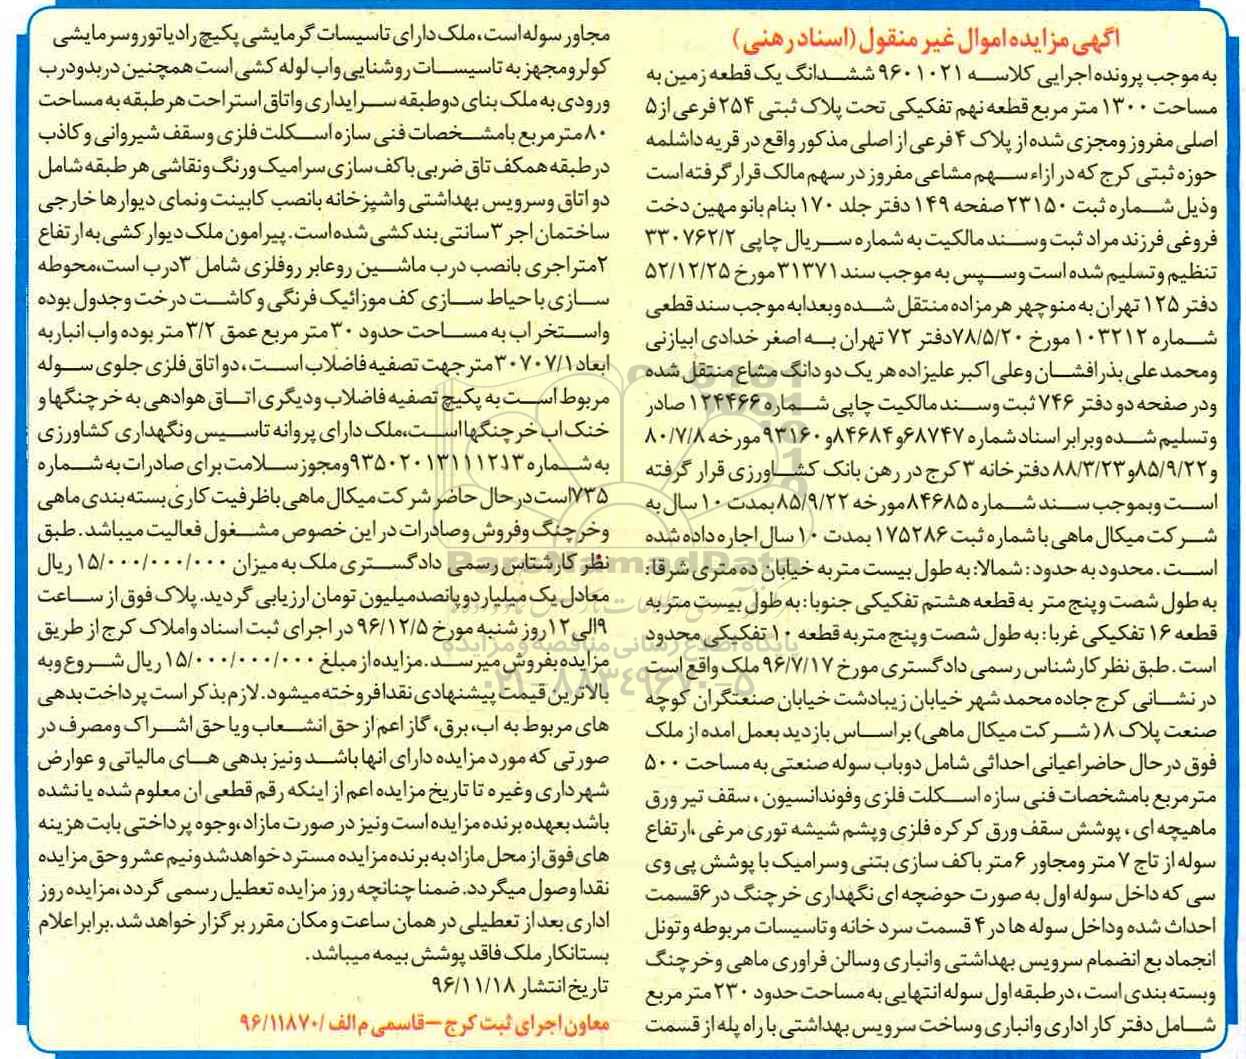 اگهی مزایده اموال غیر منقول (اسناد رهنی)
به موجب پرونده اجرایی کلاسه ۹۶۰۱۰۲۱ ششدانگ یک قطعه زمین به
مساحت ۱۳۰۰ متر مربع قطعه نهم تفکیکی تحت پلاک ثبتی ۲۵۴ فرعی از ۵
اصلی مفروز ومجزی شده از پلاک ۴ فرعی از اصلی مذکور واقع در قریه داشلمه
حوزه ثبتی کرج که در ازاء سهم مشاعی مفروز در سهم مالک قرار گرفته است
وذیل شماره ثبت ۲۳۱۵۰ صفحه ۱۴۹ دفتر جلد ۱۷۰ بنام بانو مهین دخت
فروغی فرزند مراد ثبت وسند مالکیت به شماره سریال چاپی ۳۳۰۷۶۲/۲
تنظیم وتسلیم شده است وسپس به موجب سند ۳۱۳۷۱ مورخ ۵۲/۱۲/۲۵
دفتر ۱۲۵ تهران به منوچهر هرمزاده منتقل شده وبعدابه موجب سند قطعی
شماره ۱۰۳۲۱۲ مورخ ۷۸/۵/۲۰دفتر ۷۲ تهران به اصغر خدادی ابیازنی
ومحمدعلی بذرافشان وعلی اکبر علیزاده هر یک دو دانگ مشاع منتقل شده
ودر صفحه دو دفتر ۷۴۶ ثبت وسند مالکیت چاپی شماره ۱۲۴۴۶۶ صادر
وتسلیم شده وبرابر اسناد شماره ۶۸۷۴۷و ۸۴۶۸۴و ۹۳۱۶۰ مورخه ۸۰/۷/۸
و۸۵/۹/۲۲و۸۸/۳/۲۳ دفترخانه ۳ کرج در رهن بانک کشاورزی قرار گرفته
است وبموجب سند شماره ۸۴۶۸۵مورخه ۸۵/۹/۲۲بمدت ۱۰ سال به
شرکت میکال ماهی با شماره ثبت ۱۷۵۲۸۶ بمدت ۱۰ سال اجاره داده شده
است . محدود به حدود : شمالا: به طول بیست متربه خیابان ده متری شرقا:
به طول شصت وپنج متر به قطعه هشتم تفکیکی جنوبا: به طول بیست متر به
قطعه ۱۶ تفکیکی غربا: به طول شصت وپنج متربه قطعه ۱۰ تفکیکی محدود
است . طبق نظر کارشناس رسمی دادگستری مورخ ۹۶/۷/۱۷ ملک واقع است
در نشانی کرج جاده محمد شهر خیابان زیبادشت خیابان صنعتگران کوچه
صنعت پلاک ۸ (شرکت میکال ماهی) بر اساس بازدید بعمل امده از ملک
فوق در حال حاضر اعیانی احداثی شامل دوباب سوله صنعتی به مساحت ۵۰۰
مترمربع بامشخصات فنی سازه اسکلت فلزی وفوندانسیون ، سقف تیر ورق
ماهیچه ای ، پوشش سقف ورق کرکره فلزی وپشم شیشه توری مرغی ،ارتفاع
سوله از تاج ۷ متر ومجاور ۶ متر باکف سازی بتنی وسرامیک با پوشش پی وی
سی که داخل سوله اول به صورت حوضچه ای نگهداری خرچنگ در ۶قسمت
احداث شده وداخل سوله ها در ۴ قسمت سرد خانه وتاسیسات مربوطه وتونل
انجماد بع انضمام سرویس بهداشتی وانباری وسالن فراوری ماهی وخرچنگ
وبسته بندی است ، درطبقه اول سوله انتهایی به مساحت حدود ۲۳۰ متر مربع
شامل دفتر کار اداری وانباری وساخت سرویس بهداشتی با راه پله از قسمت
مجاور سوله است ، ملک دارای تاسیسات گرمایشی پکیج رادیاتوروسرمایشی
کولر ومجهز به تاسیسات روشنایی واب لوله کشی است همچنین دربدودرب
ورودی به ملک بنای دوطبقه سرایداری واتاق استراحت هر طبقه به مساحت
۸۰ مترمربع بامشخصات فنی سازه اسکلت فلزی وسقف شیروانی وکاذب
درطبقه همکف تاق ضربی باکف سازی سرامیک ورنگ ونقاشی هر طبقه شامل
دو اتاق وسرویس بهداشتی واشپزخانه بانصب کابینت ونمای دیوارها خارجی
ساختمان اجر ۳سانتی بندکشی شده است . پیرامون ملک دیوارکشی به ارتفاع
۲متراجری بانصب درب ماشین روعابر روفلزی شامل ۳درب است،محوطه
سازی با حیاط سازی کف موزائیک فرنگی وکاشت درخت وجدول بوده
واستخر اب به مساحت حدود ۳۰ متر مربع عمق ۳/۲ متر بوده واب انبار به
ابعاد ۳۰۷۰۷/۱ مترجهت تصفیه فاضلاب است ، دواتاق فلزی جلوی سوله
مربوط است به پکیج تصفیه فاضلاب ودیگری اتاق هوادهی به خرچنگها و
خنک اب خرچنگها است،ملک دارای پروانه تاسیس ونگهداری کشاورزی
به شماره ۹۳۵۰۲۰۱۳۱۱۱۲۱۳ومجوز سلامت برای صادرات به شماره
۷۳۵است درحال حاضر شرکت میکال ماهی باظرفیت کاری بسته بندی ماهی
وخرچنگ وفروش وصادرات در این خصوص مشغول فعالیت میباشد . طبق
نظر کارشناس رسمی دادگستری ملک به میزان ۱۵/۰۰۰/۰۰۰/۰۰۰ ریال
معادل یک میلیارد وپانصدمیلیون تومان ارزیابی گردید. پلاک فوق از ساعت
۹الی ۱۲ روز شنبه مورخ ۹۶/۱۲/۵ در اجرای ثبت اسناد واملاک کرج از طریق
مزایده بفروش میرسد . مزایده از مبلغ ۱۵/۰۰۰/۰۰۰/۰۰۰ ریال شروع وبه
بالاترین قیمت پیشنهادی نقدا فروخته میشود . لازم بذکر است پرداخت بدهی
های مربوط به اب، برق، گاز اعم از حق انشعاب ویا حق اشتراک ومصرف در
صورتی که مورد مزایده دارای انها باشد ونیز بدهی های مالیاتی و عوارض
شهرداری وغیره تا تاریخ مزایده اعم از اینکه رقم قطعی ان معلوم شده یا نشده
باشد بعهده برنده مزایده است ونیز در صورت مازاد ،وجوه پرداختی بابت هزینه
های فوق از محل مازاد به برنده مزایده مسترد خواهد شد ونیم عشر وحق مزایده
نقدا وصول میگردد. ضمنا چنانچه روز مزایده تعطیل رسمی گردد ،مزایده روز
اداری بعد از تعطیلی در همان ساعت و مکان مقرر برگزار خواهد شد .برابر اعلام
بستانکار ملک فاقد پوشش بیمه میباشد .
تاریخ انتشار ۹۶/۱۱/۱۸
معاون اجرای ثبت کرج – قاسمی م الف / ۹۶/۱۱۸۷۰
ParsNamadData
پایگاه اطلاع رسانی مناقصه و مزایده
۰۲۱-۸۸۳۴۹۶۷۰-۵